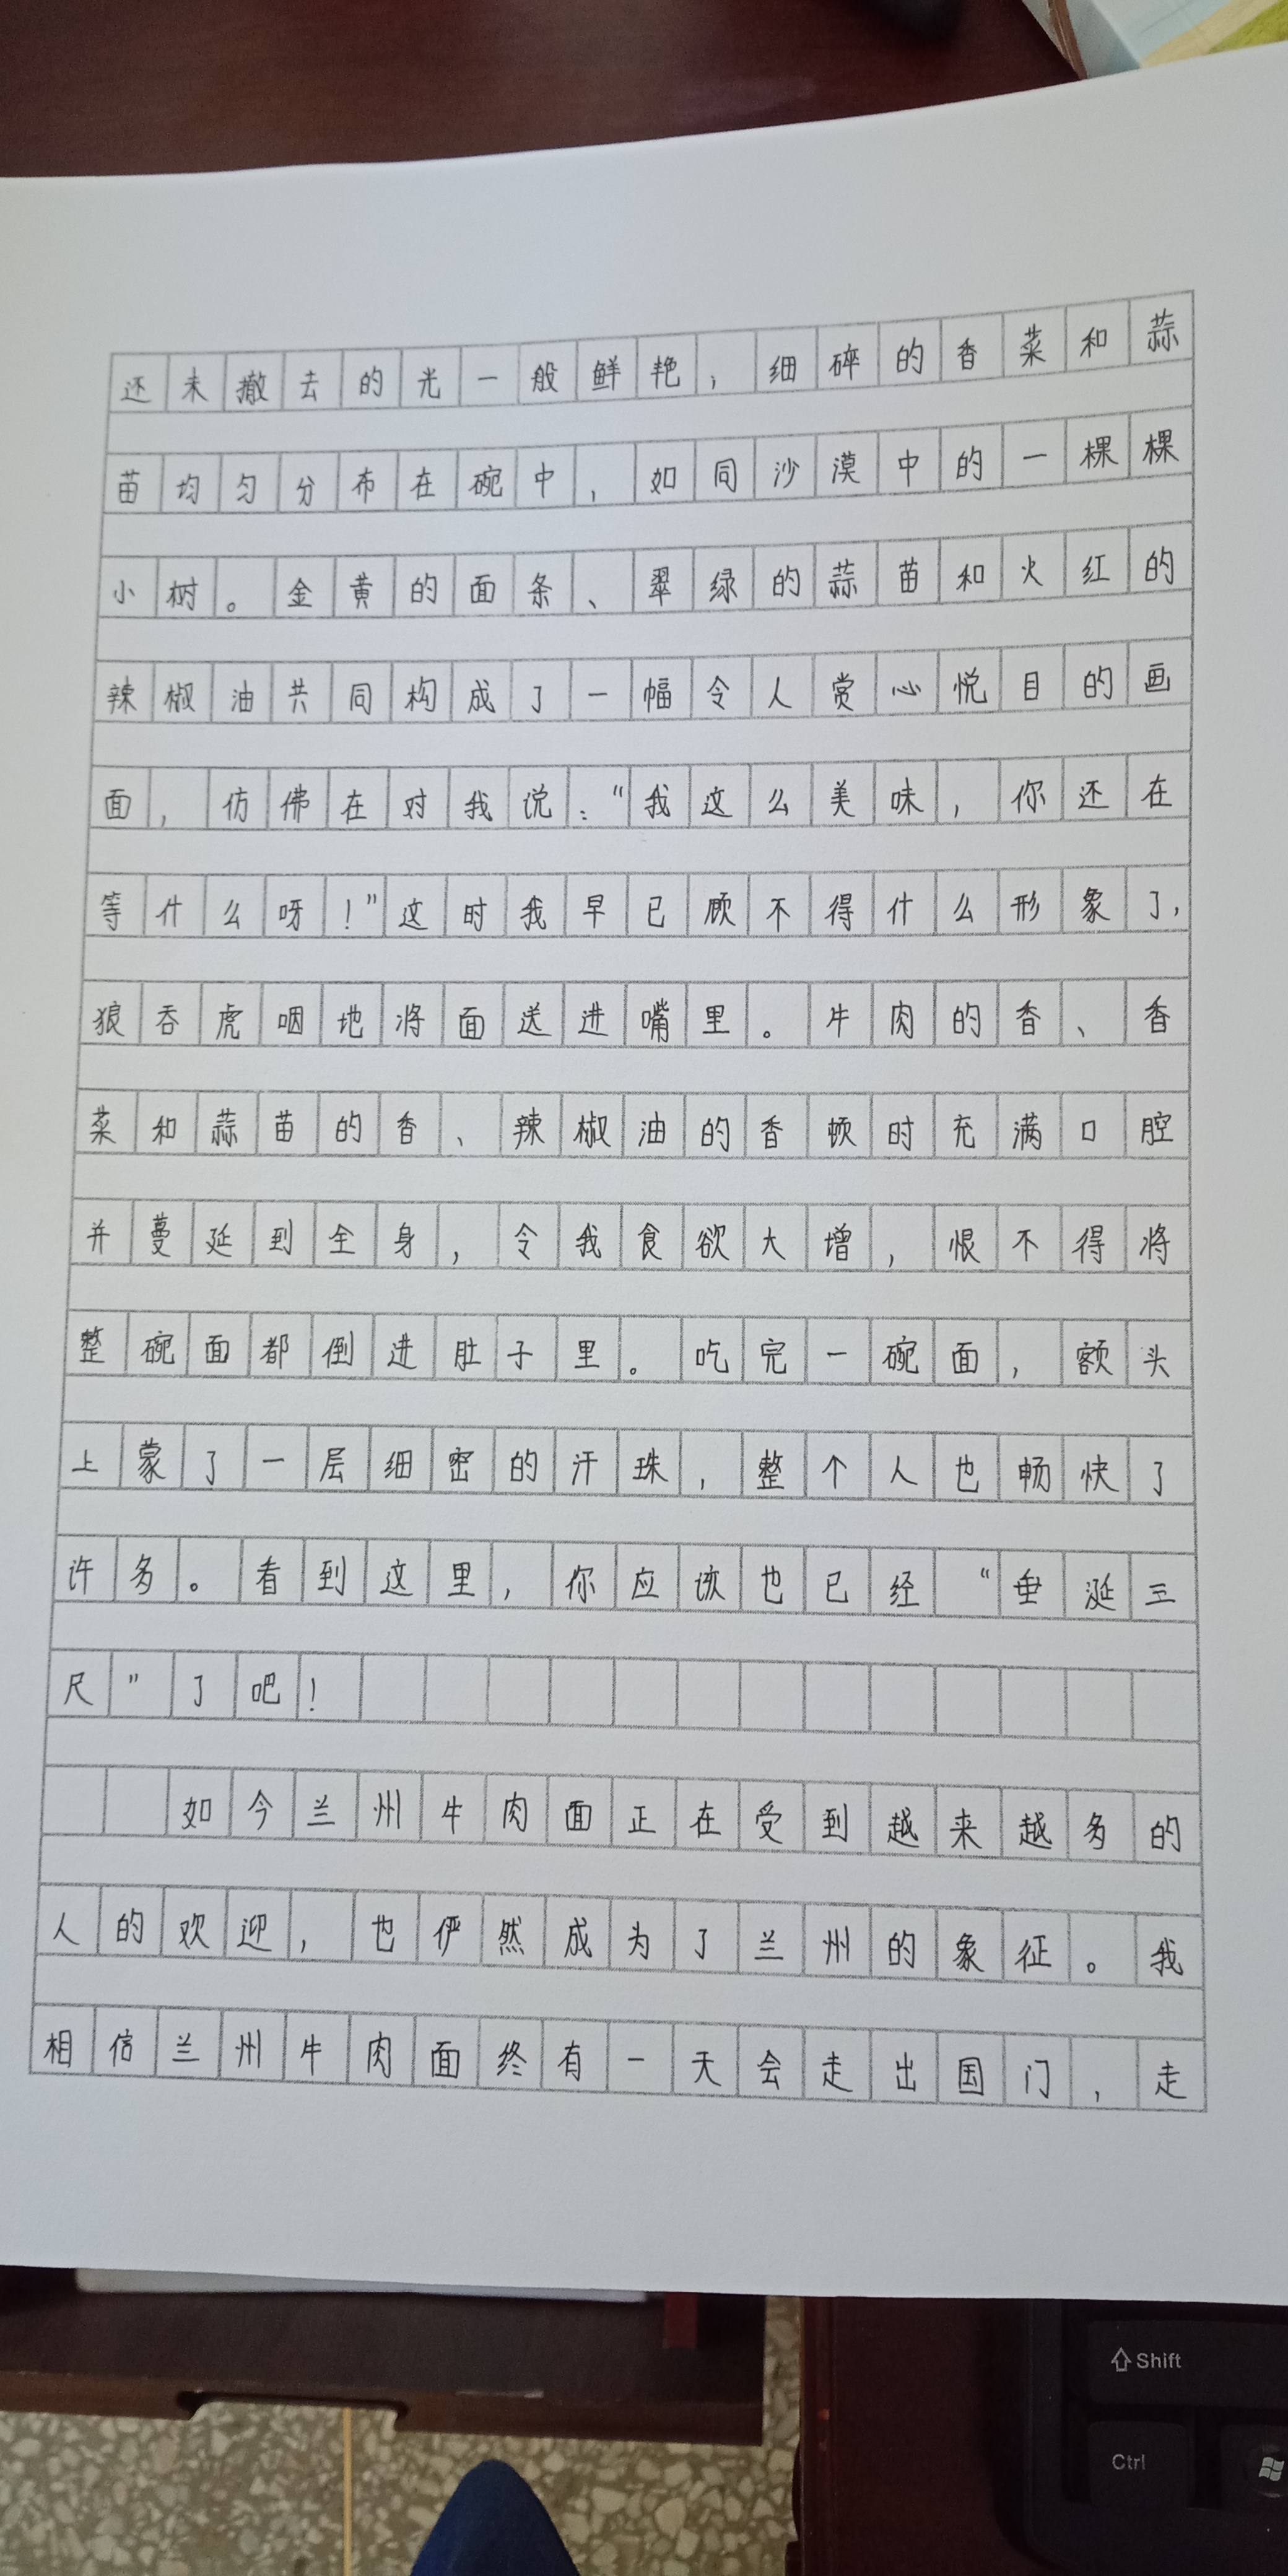 还未撤去的光一般鲜艳，细碎的香菜和蒜
苗均匀分布在碗中，如同沙漠中的一棵棵
小树。金黄的面条、翠绿的蒜苗和火红的
辣椒油共同构成了一幅令人赏心悦目的画
面，仿佛在对我说：“我这么美味，你还在
等什么呀！”这时我早已顾不得什么形象了，
狼吞虎咽地将面送进嘴里。牛肉的香、香
菜和蒜苗的香、辣椒油的香顿时充满口腔
并蔓延到全身，令我食欲大增，恨不得将
整碗面都倒进肚子里。吃完一碗面，额头
上蒙了一层细密的汗珠，整个人也畅快了
许多。看到这里，你应该也已经“垂涎三
尺”了吧！
如今兰州牛肉面正在受到越来越多的
人的欢迎，也俨然成为了兰州的象征。我
相信兰州牛肉面终有一天会走出国门，走
Shift
Ctrl